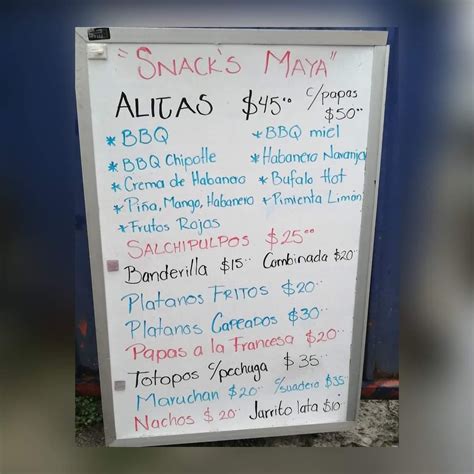 "SNACK'S MAYA"
ALITAS $45.00 c/papas $50.00
* BBQ * BBQ miel
* BBQ Chipotle * Habanero Naranja
* Crema de Habanero * Bufalo Hot
* Piña, Mango, Habanero * Pimienta Limón
* Frutos Rojos
SALCHIPULPOS $25.00
Banderilla $15.00 Combinada $20.00
Platanos FRITOS $20.00
Platanos CAPEADOS $30.00
PAPAS a la FRANCESA $20.00
Totopos c/pechuga $35.00
Maruchan $20.00 c/suadero $35.00
Nachos $20.00 Jarrito lata $10.00